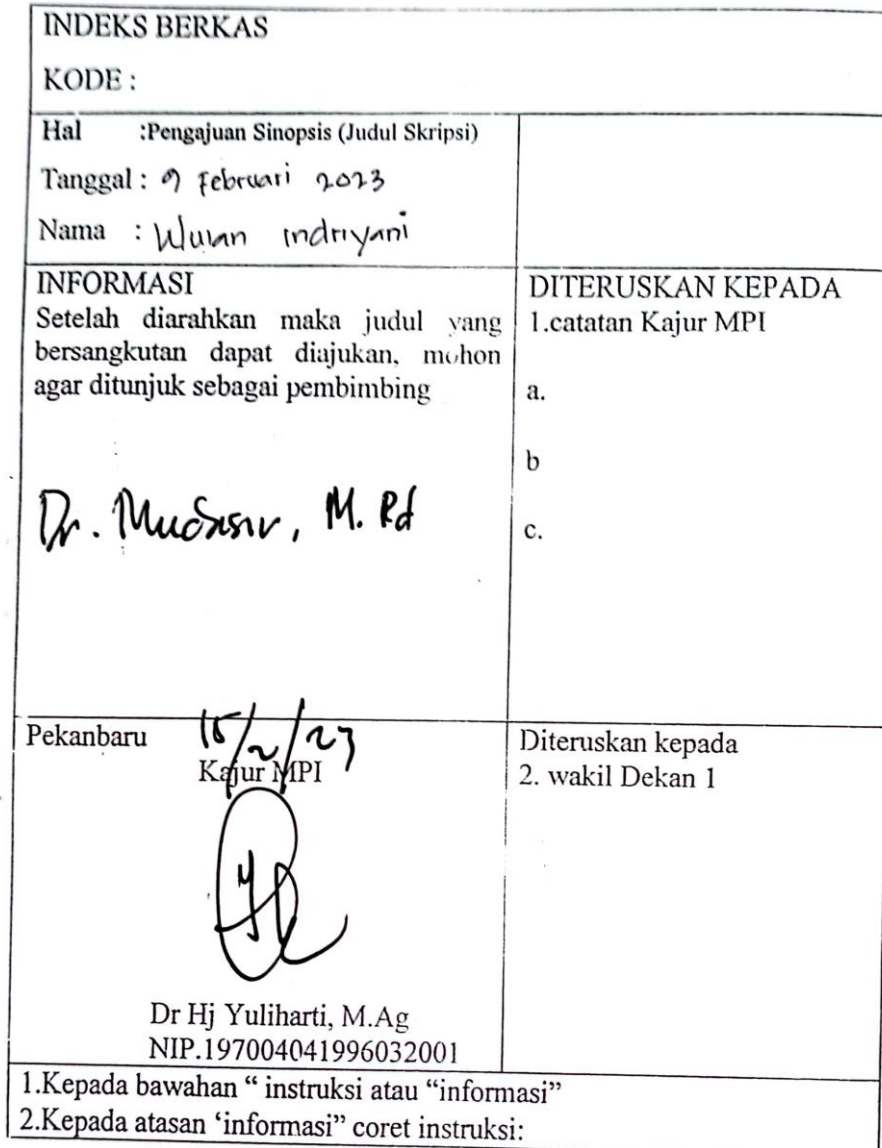 INDEKS BERKAS
KODE :
Hal :Pengajuan Sinopsis (Judul Skripsi)
Tanggal : 9 Februari 2023
Nama : Wulan indriyani
INFORMASI
Setelah diarahkan maka judul yang
bersangkutan dapat diajukan, mohon
agar ditunjuk sebagai pembimbing
Dr. Mudasir, M. Pd
DITERUSKAN KEPADA
1.catatan Kajur MPI
a.
b
c.
Pekanbaru 15/2/23
Kajur MPI
Dr Hj Yuliharti, M.Ag
NIP.197004041996032001
Diteruskan kepada
2. wakil Dekan 1
1.Kepada bawahan “ instruksi atau “informasi”
2.Kepada atasan ‘informasi” coret instruksi: